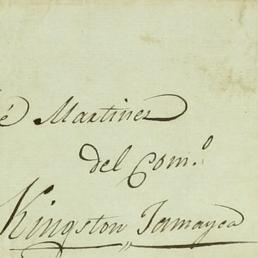 é Martinez
del Com.º
Kingston Jamayca